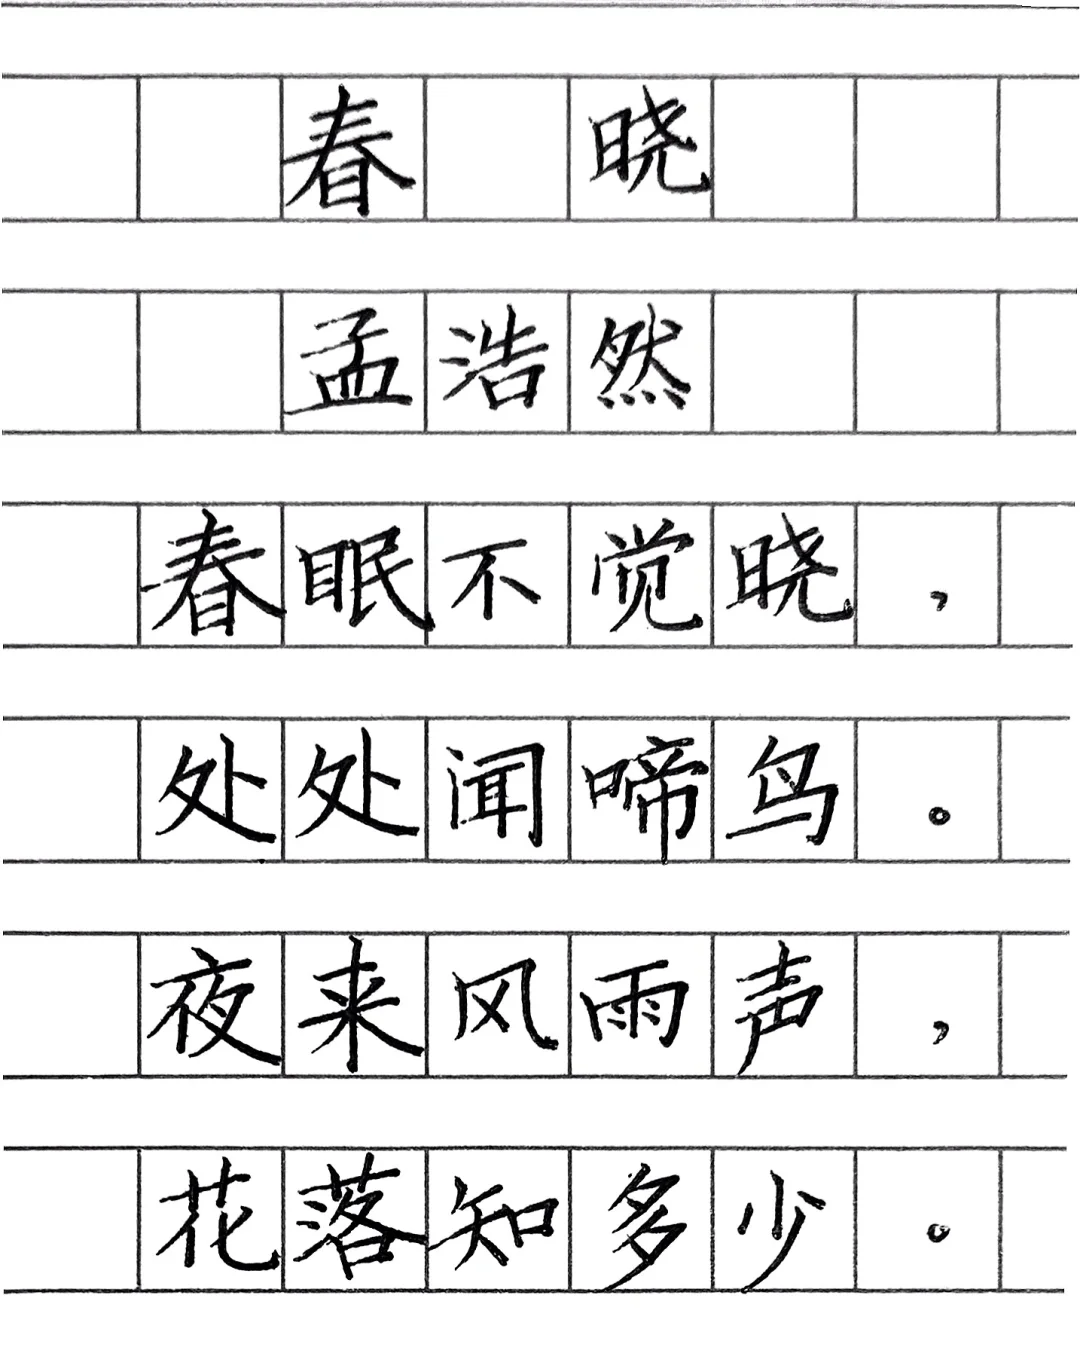 春 晓
孟浩然
春眠不觉晓，
处处闻啼鸟。
夜来风雨声，
花落知多少。